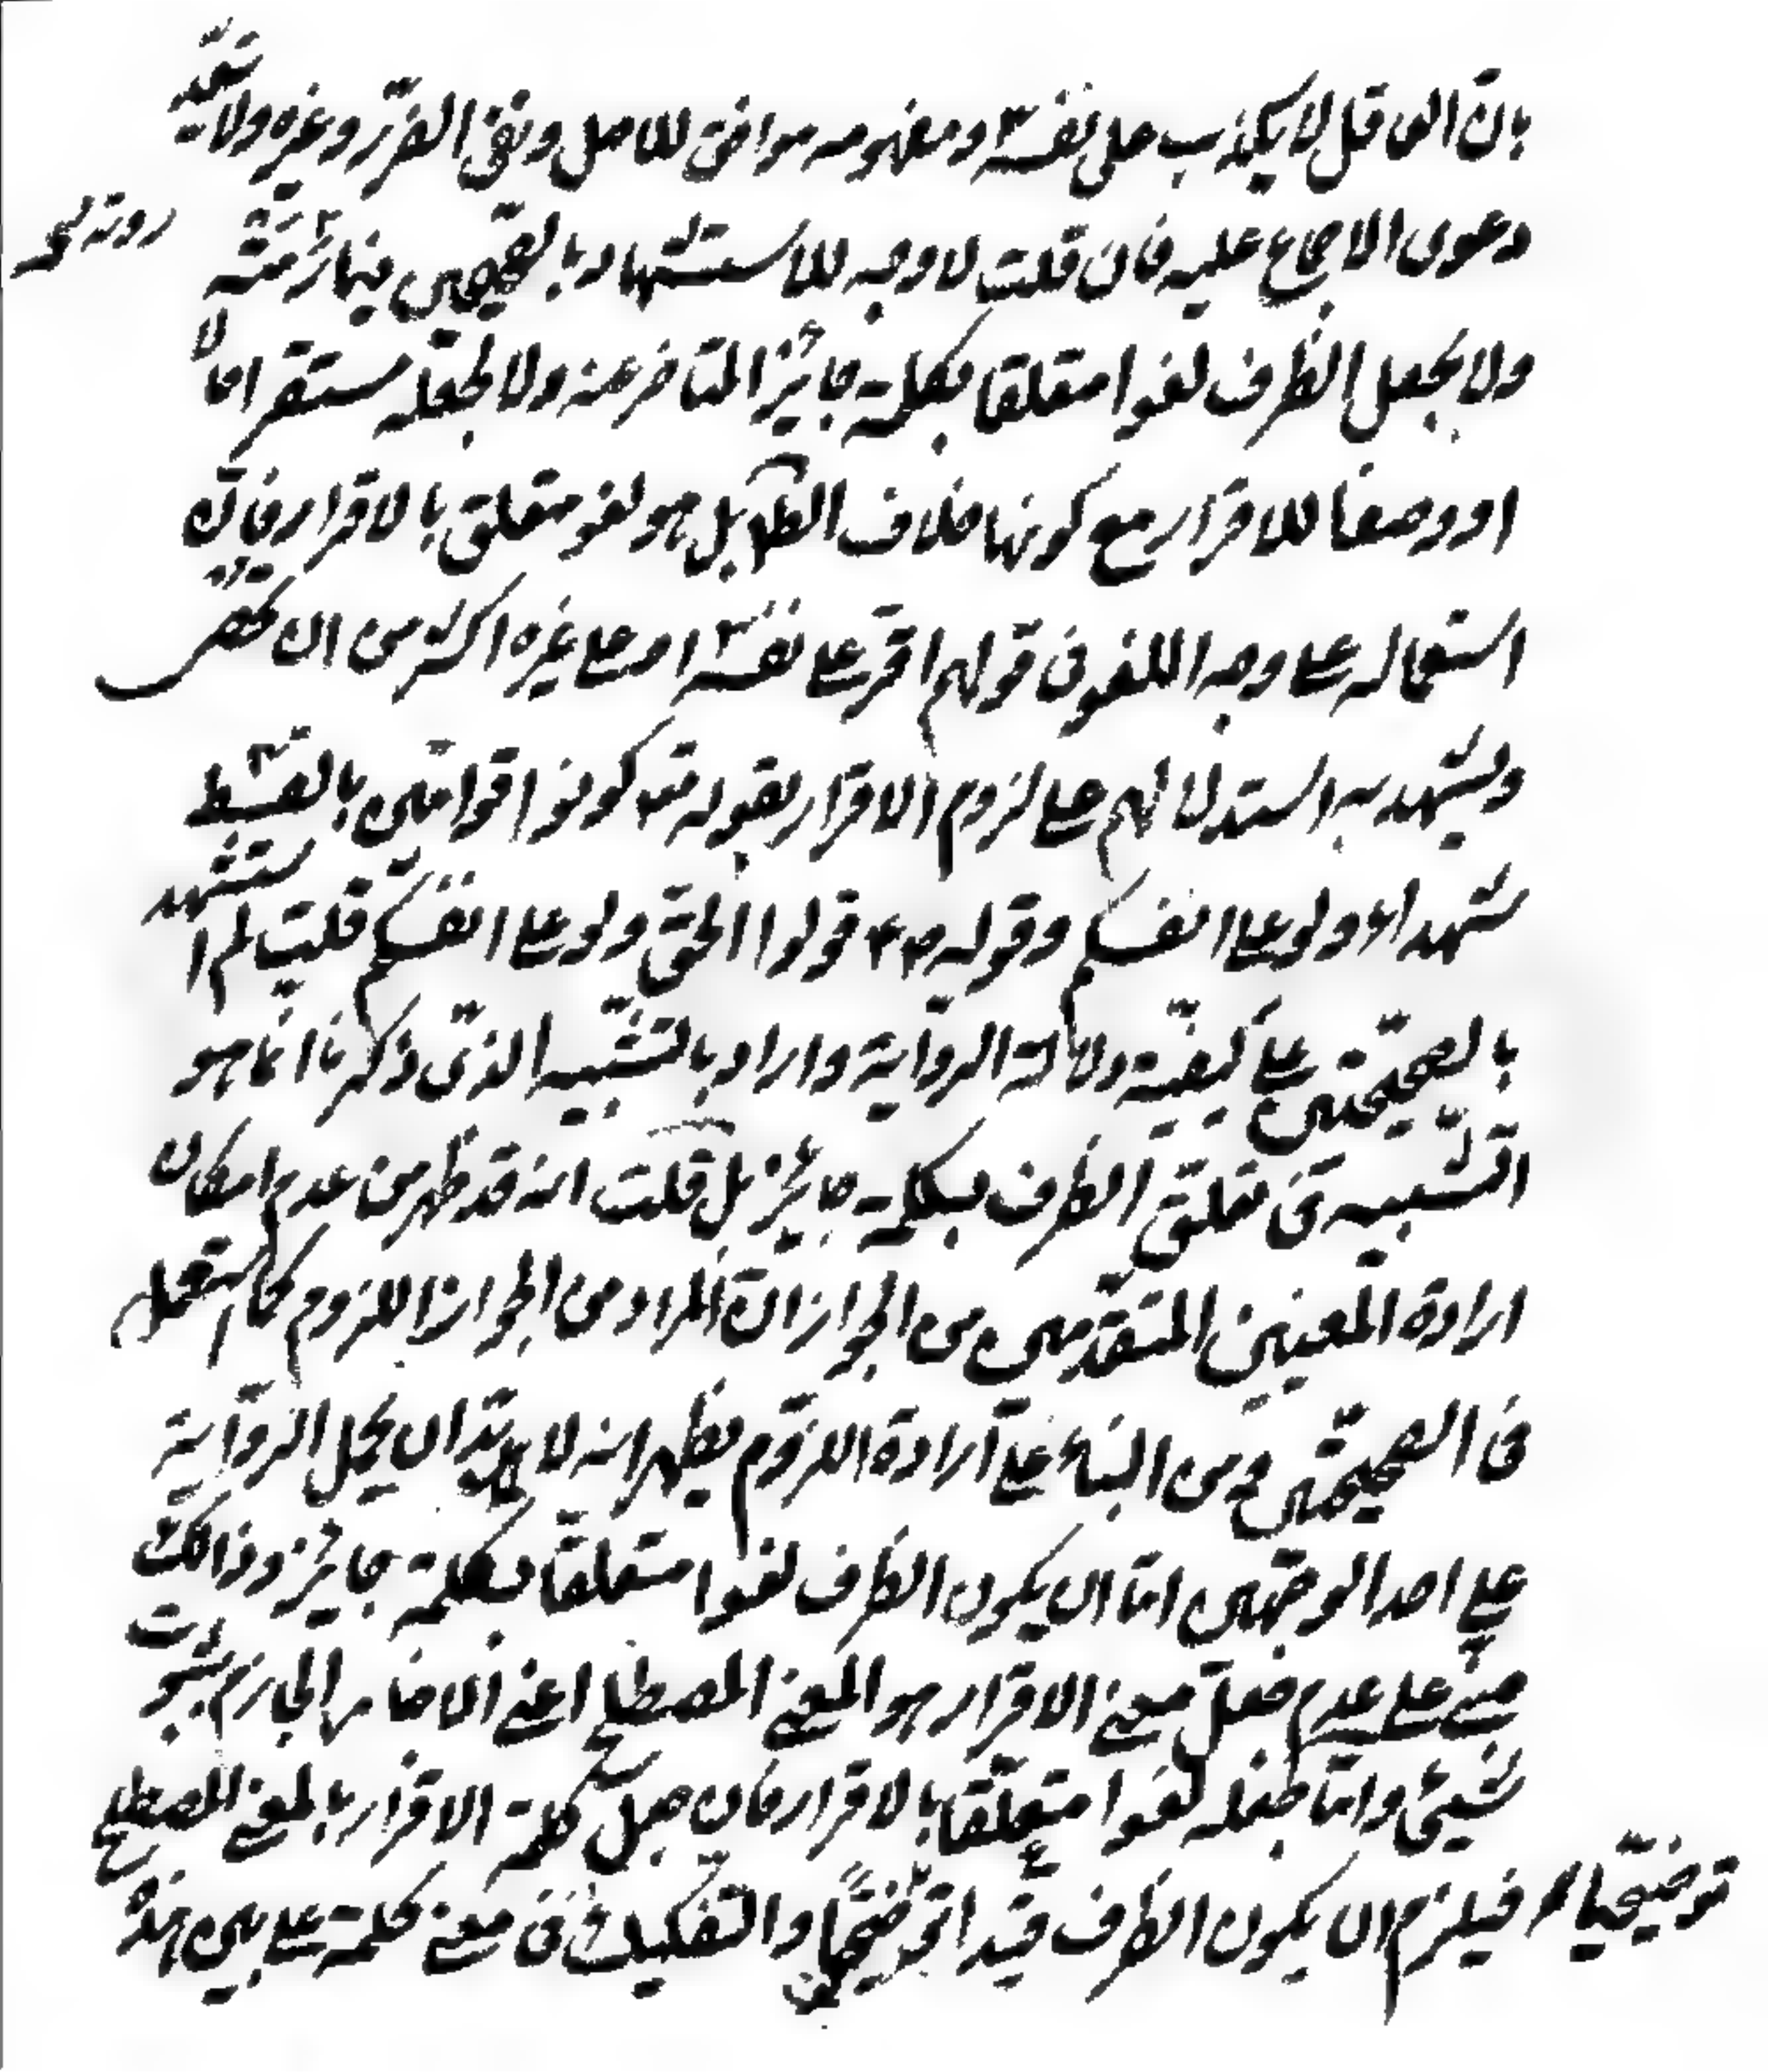 بان العاقل لا يكذب على نفسه ومفهومه موافق للاصل ونفى الضرر وغيره ولا يبعد
دعوى الاجماع عليه فان قلت لا وجه للاستشهاد بالصحيحين
ولا بجعل الظرف لغوا متعلقا بكلمة جايز المتاخر عنه ولا لجعله مستقرا حالا
او وصفا للاقرار مع كونها خلاف الظ بل هو لغو متعلق بالاقرار فان
استعماله على وجه اللغو فى قولهم اقر على نفسه او على غيره اكثر من ان تحصى
ويشهد به استدلالهم على لزوم الاقرار بقوله تعه كونوا قوامين بالقسط
شهداء ولو على انفسكم وقوله قولوا الحق ولو على انفسكم قلت لم استشهد
بالصحيحتين على كيفية دلالة الرواية واراد بالتشبيه الذى ذكرنا انما هو
التشبيه فى تعلق الظرف بكلمة جايز بل قلت انه قد ظهر من عدم امكان
ارادة المعنيين المتقدمين من الجواز ان المراد من الجواز اللزوم كما استعمل
فى الصحيحتين ومن البناء على ارادة اللزوم يظهر انه لا بد ان يحمل الرواية
على احد الوجهين اما ان يكون الظرف لغوا متعلقا بكلمة جايز وذلك
مبنى على عدم جعل معنى الاقرار هو المعنى المصطلح اعنى الاخبار الجازم بثبوت
شيئ واما جعله لغوا متعلقا بالاقرار فان جعل كلمة الاقرار بالمعنى المصطلح
فيلزم ان يكون الظرف قيدا توضيحيا والتفكيك فى معنى كلمة على بين هذه
توضيحيا